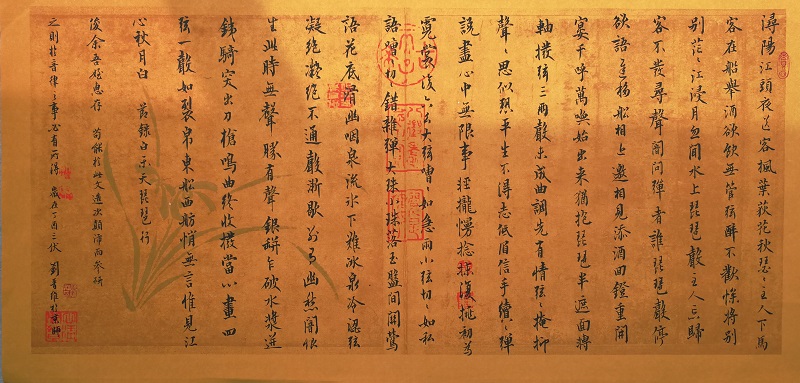 潯陽江頭夜送客楓葉荻花秋瑟〻主人下馬
客在船舉酒欲飲無管弦醉不歡慘將別
別茫〻江浸月忽聞水上琵琶聲主人忘歸
客不發尋聲闇問彈者誰琵琶聲停
欲語遲移船相近邀相見添酒回鐙重開
宴千呼萬喚始出來猶抱琵琶半遮面轉
軸撥弦三兩聲未成曲調先有情弦〻掩抑
聲〻思似訴平生不得志低眉信手續〻彈
說盡心中無限事輕攏慢撚抹復挑初為
霓裳後六幺大弦嘈〻如急雨小弦切〻如私
語嘈〻切〻錯雜彈大珠小珠落玉盤間關鶯
語花底滑幽咽泉流冰下難冰泉冷澀弦
凝絕凝絕不通聲漸歇別有幽愁闇恨
生此時無聲勝有聲銀缾乍破水漿迸
鐵騎突出刀槍鳴曲終收撥當心畫四
弦一聲如裂帛東船西舫悄無言惟見江
心秋月白 節錄白樂天琵琶行
後余吾姪惠存 苟能於此文造次顛沛而參研
之則於音律之事必有所得 歲在丁酉三伏 劉